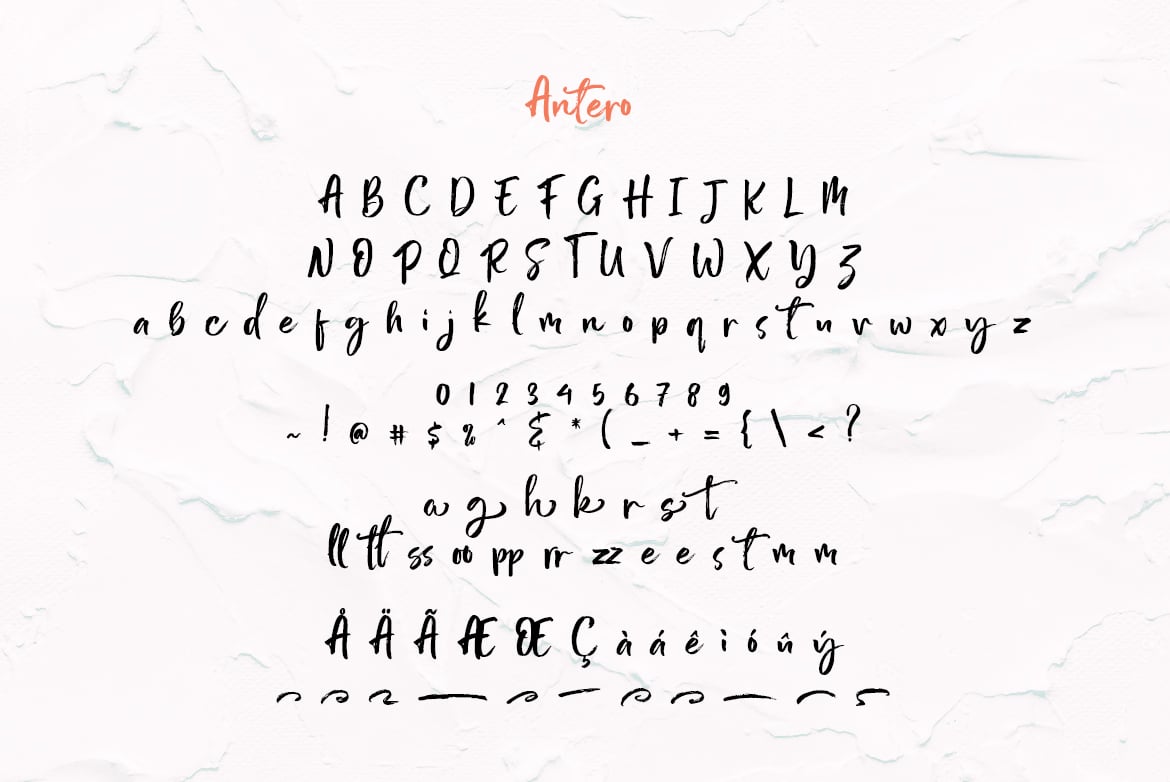 Antero
A B C D E F G H I J K L M
N O P Q R S T U V W X Y Z
a b c d e f g h i j k l m n o p q r s t u v w x y z
0 1 2 3 4 5 6 7 8 9
~ ! @ # $ % ^ & * ( _ + = { \ < ?
a g h k r s t
ll tt ss oo pp rr zz e e s t m m
Å Ä Ã Æ Œ Ç à á ê ì ó û ý